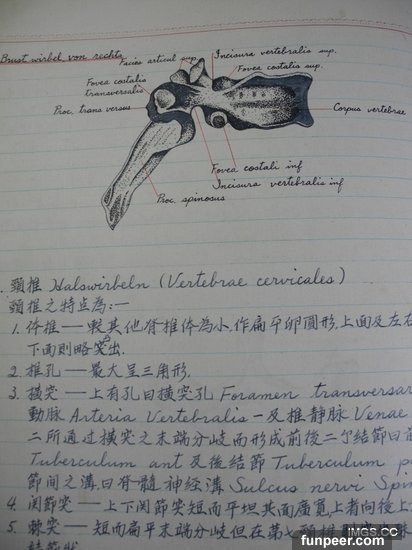 Brust wirbel von rechts
Facies articul sup.
Incisura vertebralis sup.
Fovea costalis sup.
Fovea costalis
transversalis
Proc. transversus
Corpus vertebrae
Fovea costali inf
Incisura vertebralis inf
Proc. spinosus
. 頸椎 Halswirbeln (Vertebrae cervicales)
頸椎之特点為:—
1. 体椎 — 較其他脊椎体為小.作扁平卵圓形,上面及左右
下面則略突出.
2. 椎孔 — 最大呈三角形.
3. 橫突 — 上有孔曰橫突孔 Foramen transversar
動脉 Arteria Vertebralis 一及椎静脉 Venae
二所通过橫突之末端分岐而形成前後二结節曰前
Tuberculum ant 及後结節 Tuberculum p
節间之溝曰脊髓神经溝 Sulcus nervi Spin
4. 関節突 — 上下関節突短而平坦其面廣寬,上者向後上
5. 棘突 — 短而扁平末端分岐但在第七頸椎
IMGS.CC
funpeer.com